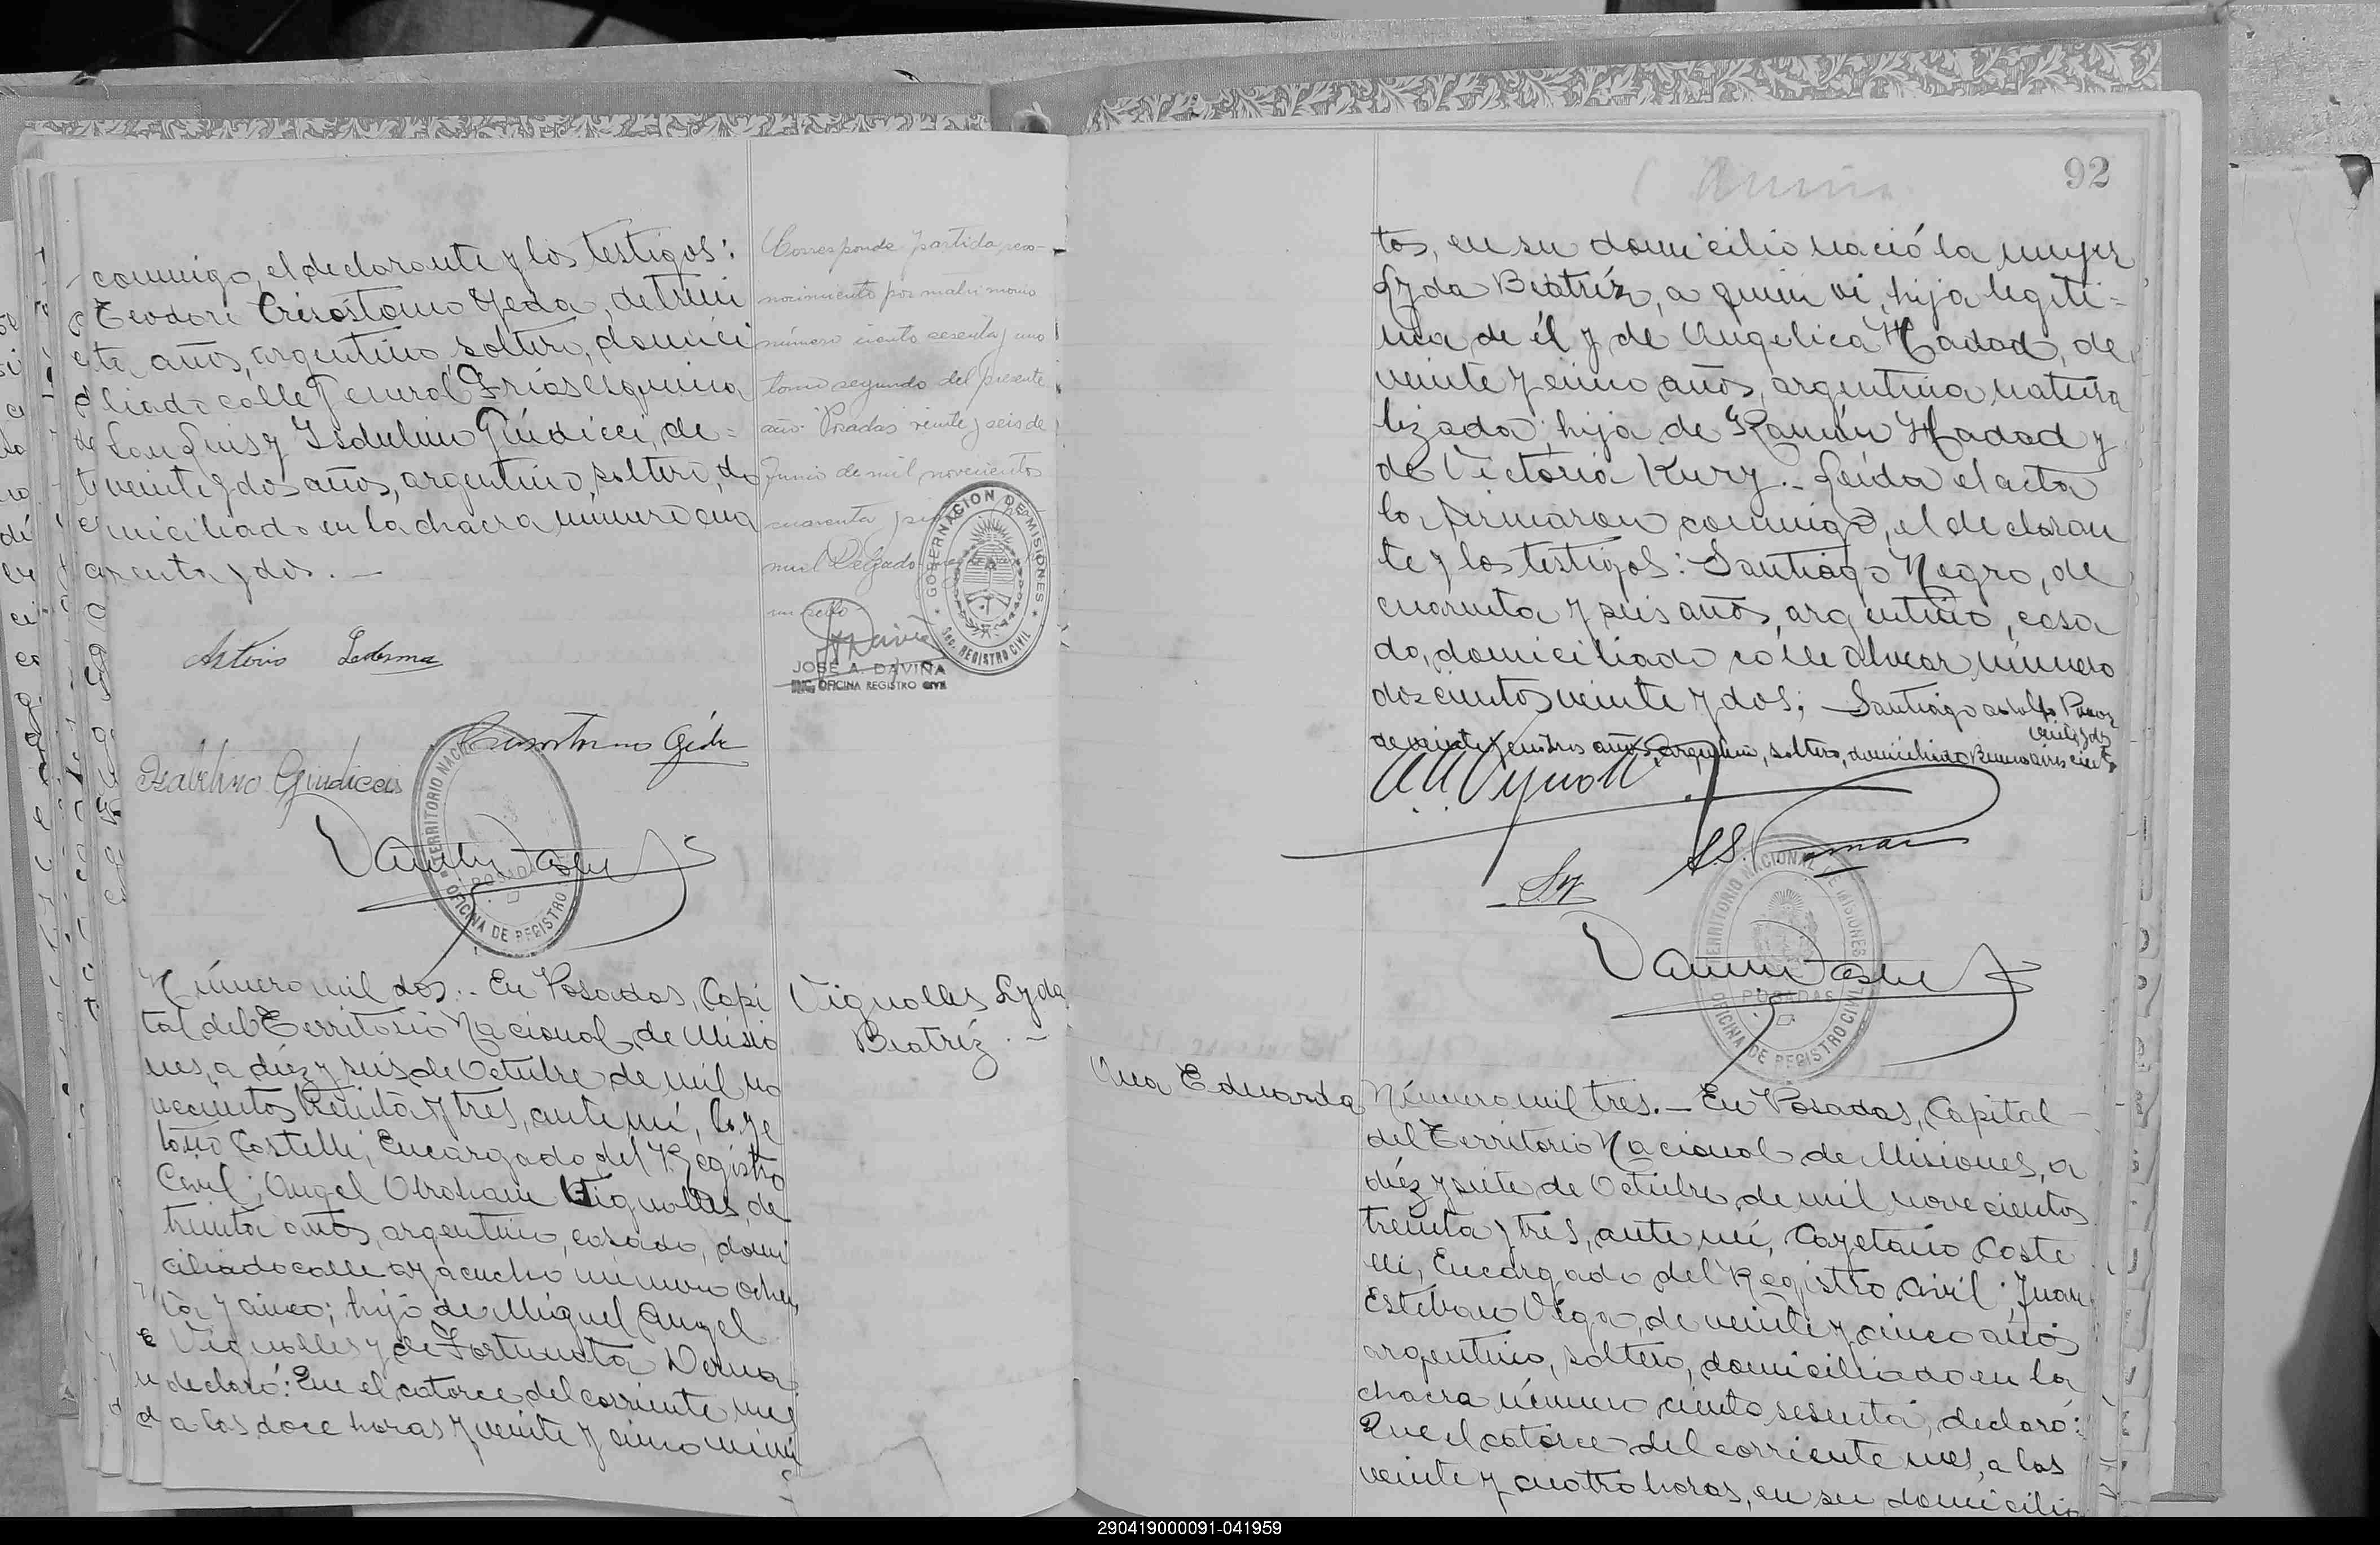 conmigo, el declarante y los testigos:
Teodoro Crisóstomo Ojeda, de trein
ta años, argentino, soltero, domici
liado calle General Frías esquina
San Luis y Isdulino Giúdicci, de=
veinte y dos años, argentino, soltero, do
miciliado en la chacra número cua
renta y dos.—
Corresponde partida reco-
nocimiento por matrimonio
número ciento sesenta y uno
tomo segundo del presente
año. Posadas veinte y seis de
Junio de mil novecientos
cuarenta y
Delgado
un sello
JOSE A. DAVIÑA
ENC. OFICINA REGISTRO CIVIL
GOBERNACION DE MISIONES
REGISTRO CIVIL
Asterio Ledesma
Crisostomo Ojeda
Giudicci
TERRITORIO NACIONAL
POSADAS
OFICINA DE REGISTRO
Número mil dos.- En Posadas, Capi
tal del Territorio Nacional de Misio
nes, a diéz y seis de Octubre de mil no
vecientos treinta y tres, ante mí, Caye
tano Costelli, Encargado del Registro
Civil; Angel Abraham Vignolles, de
treinta años, argentino, casado, domi
ciliado calle ayacucho número ochen
ta y cinco; hijo de Miguel Angel
Vignolles y de Fortunata Verna
declaró: Que el catorce del corriente mes
a las doce horas y veinte y cinco minu
Vignolles Lyda
Beatríz.—
92
tos, en su domicilio nació la mujer
Lyda Beatríz, a quien ví, hija legíti=
ma de él y de Angelica Hadad, de
veinte y cinco años, argentina natura
lizada; hija de Ramón Hadad y
de Victoria Kury.- Leída el acta
la firmaron conmigo, el declaran
te y los testigos: Santiago Negro, de
cuarenta y seis años, argentino, casa
do, domiciliado calle alvear número
doscientos veinte y dos; Santiago adolfo
veinte y dos
de veinte y cuatro años, argentino, soltero, domiciliado Buenos aires ciento
TERRITORIO NACIONAL DE MISIONES
POSADAS
OFICINA DE REGISTRO CIVIL
Ana Eduarda
Número mil tres.— En Posadas, Capital
del Territorio Nacional de Misiones, a
diéz y siete de Octubre de mil novecientos
treinta y tres, ante mí, Cayetano Coste
lli, Encargado del Registro Civil; Juan
Estéban Véga, de veinte y cinco años
argentino, soltero, domiciliado en la
chacra número ciento sesenta, declaró:
Que el catorce del corriente mes, a las
veinte y cuatro horas, en su domicilio
290419000091-041959